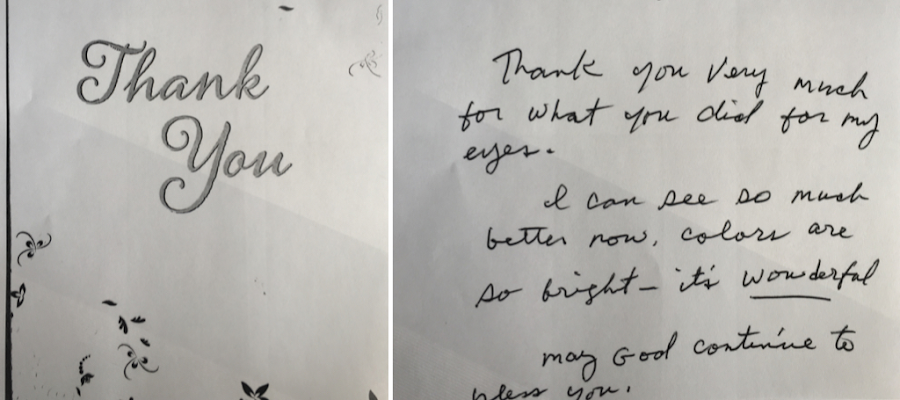 Thank
You
Thank you very much
for what you did for my
eyes.
I can see so much
better now, colors are
so bright - it's wonderful
may God continue to
bless you.